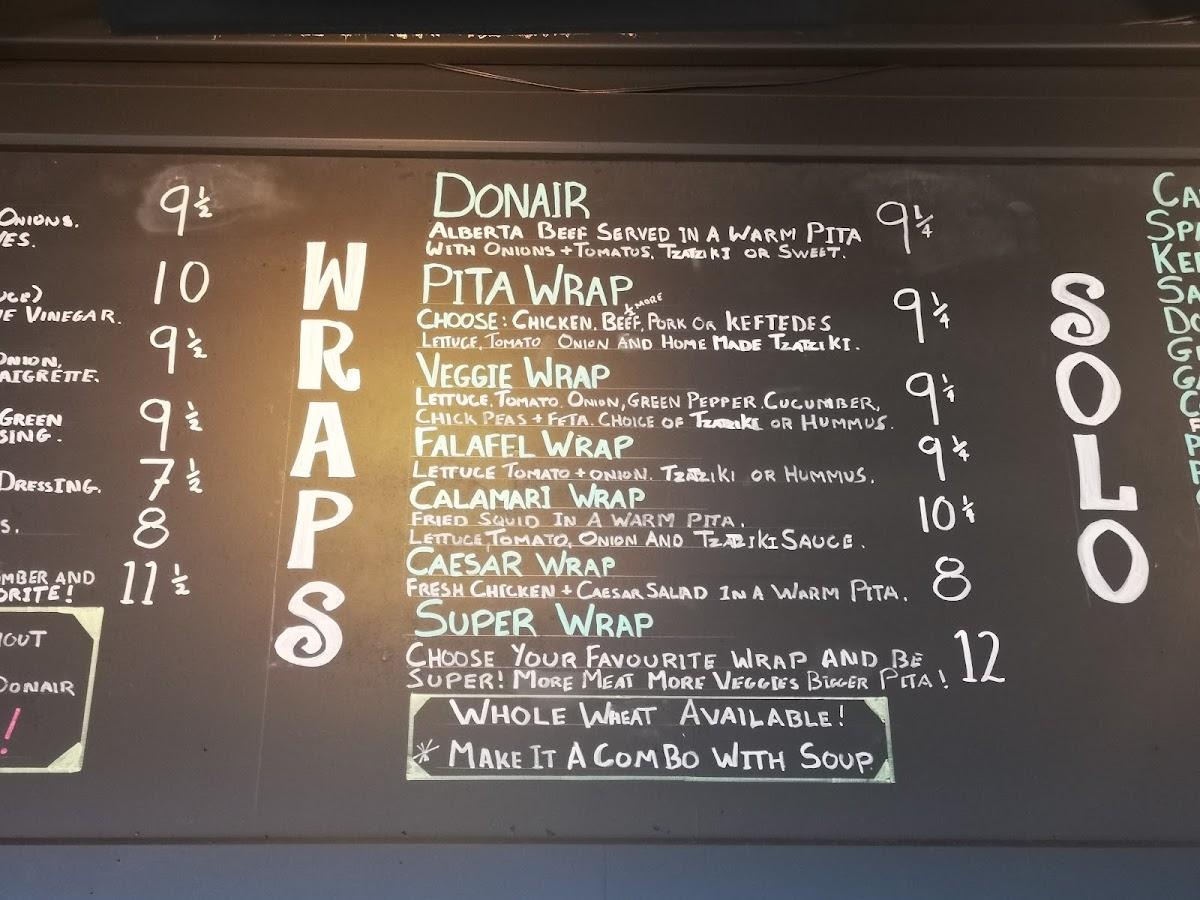 ONIONS. 9½
VES.
10
UCE)
E VINEGAR.
9½
ONION,
AIGRETTE.
GREEN 9½
SING.
DRESSING. 7½
S. 8
MBER AND 11½
ORITE!
HOUT
DONAIR
!
WRAPS
DONAIR 9¼
ALBERTA BEEF SERVED IN A WARM PITA
WITH ONIONS + TOMATOS, TZATZIKI OR SWEET.
PITA WRAP 9¼
& MORE
CHOOSE: CHICKEN, BEEF, PORK OR KEFTEDES
LETTUCE, TOMATO ONION AND HOME MADE TZATZIKI.
VEGGIE WRAP 9¼
LETTUCE, TOMATO, ONION, GREEN PEPPER, CUCUMBER,
CHICK PEAS + FETA. CHOICE OF TZATZIKI OR HUMMUS.
FALAFEL WRAP 9¼
LETTUCE TOMATO + ONION. TZATZIKI OR HUMMUS.
CALAMARI WRAP 10¼
FRIED SQUID IN A WARM PITA.
LETTUCE, TOMATO, ONION AND TZATZIKI SAUCE.
CAESAR WRAP 8
FRESH CHICKEN + CAESAR SALAD IN A WARM PITA.
SUPER WRAP
CHOOSE YOUR FAVOURITE WRAP AND BE 12
SUPER! MORE MEAT MORE VEGGIES BIGGER PITA!
WHOLE WHEAT AVAILABLE!
* MAKE IT A COMBO WITH SOUP
SOLO
CA
SP
KE
SA
DO
G
GA
C
F
P
F